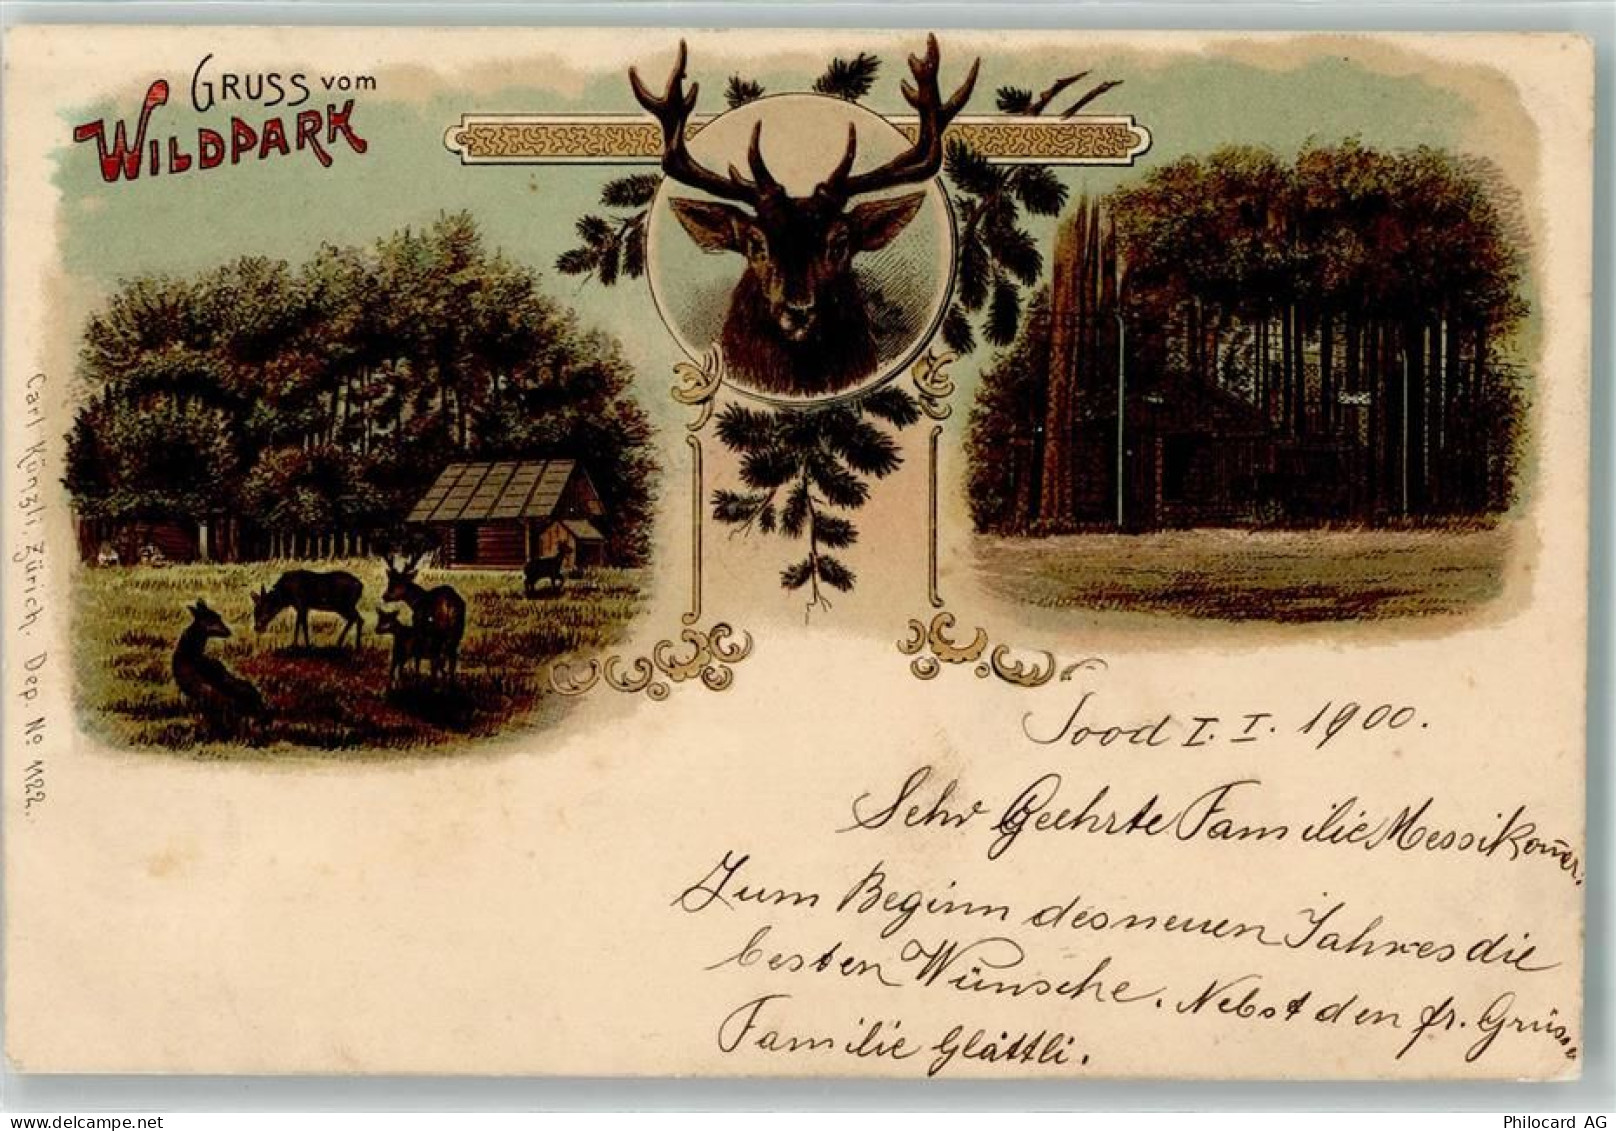 GRUSS vom
WILDPARK
Carl Künzli, Zürich. Dep. No. 1122.
Sood I. I. 1900.
Sehr Geehrte Familie Messikom̄er.
Zum Beginn des neuen Jahres die
besten Wünsche. Nebst den fr. Grüsse
Familie Glättli.
Philocard AG